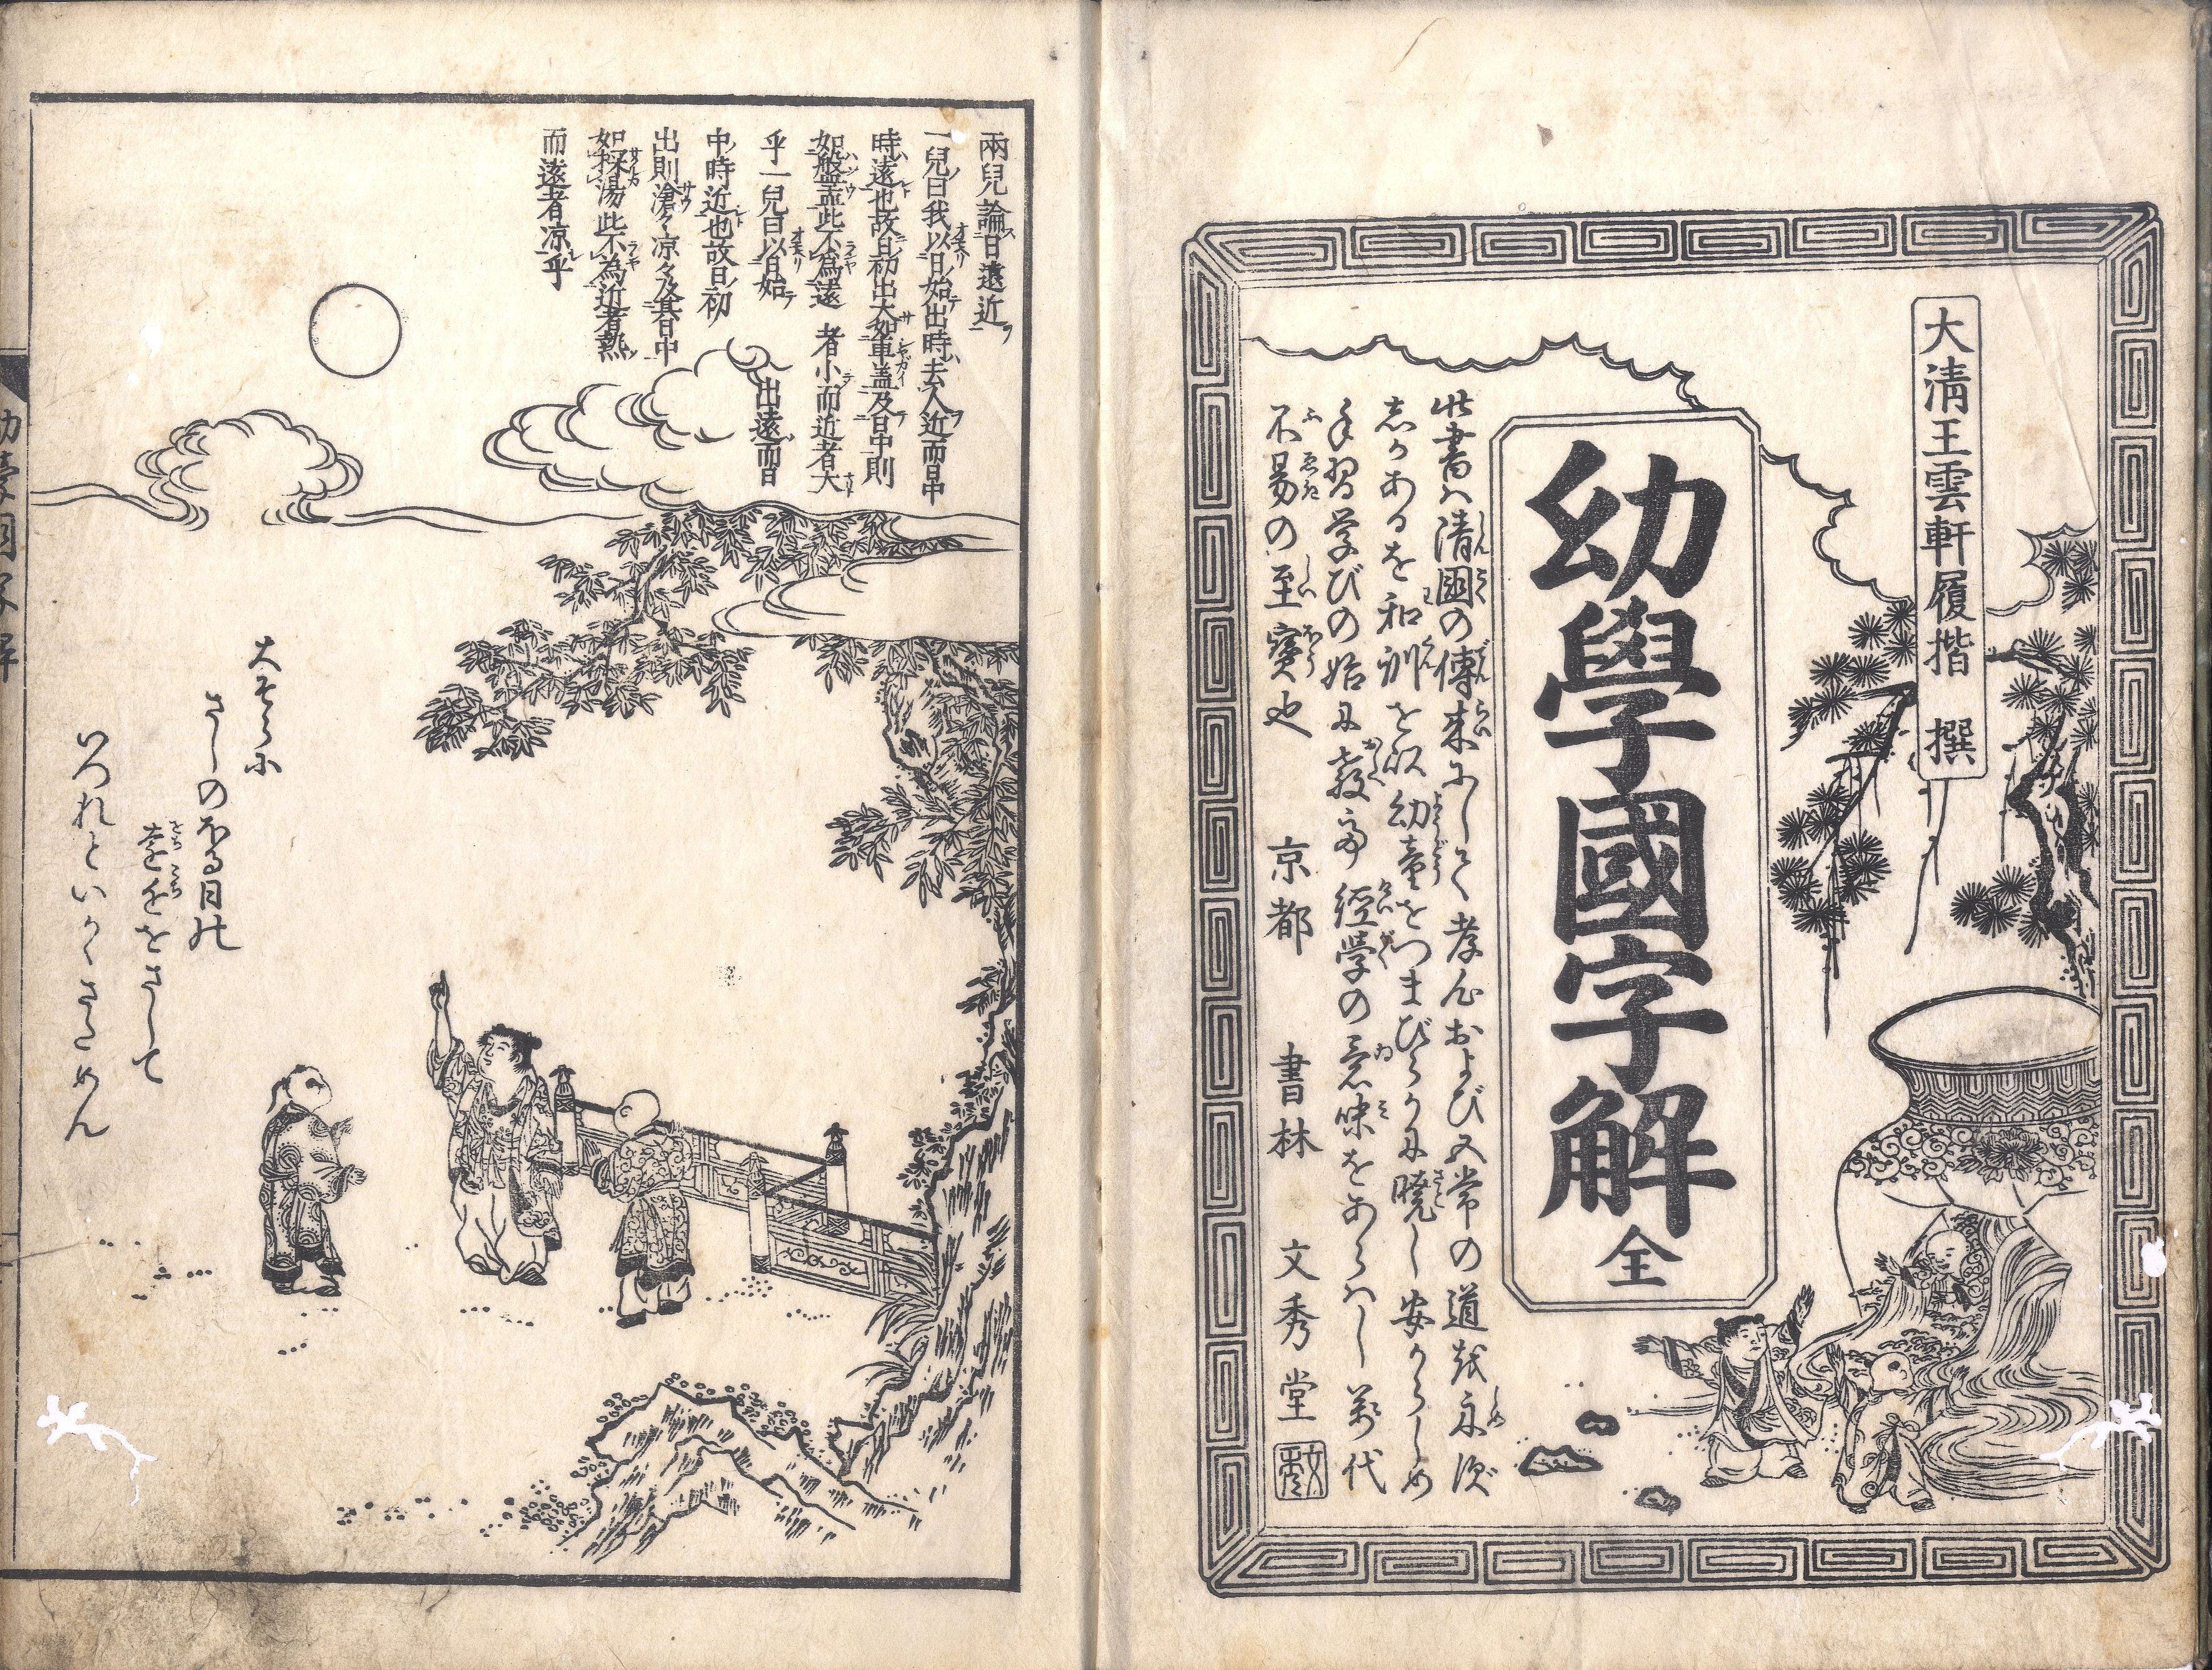 大清王雲軒履揩 撰
幼學國字解 全
此書ハ清國の傳来にして孝心および五常の道越永須
志るあるを和訓を以幼童をつまびらかに曉し安からしめ
手習学びの始に教市經学の意味をあらハし萬代
不易の至寳也 京都 書林 文秀堂
兩兒論日遠近
一兒曰我以日始出時去人近而日中
時遠也故日初出大如車盖及日中則
如盤盂此不為遠者小而近者大
乎一兒曰以日始出遠而日
中時近也故日初
出則滄々凉々及其日中
如探湯此不為近者熱
而遠者凉乎
大そらに
さしのぼる日の
遠近をさして
いづれといかくさだめん
幼學國字解